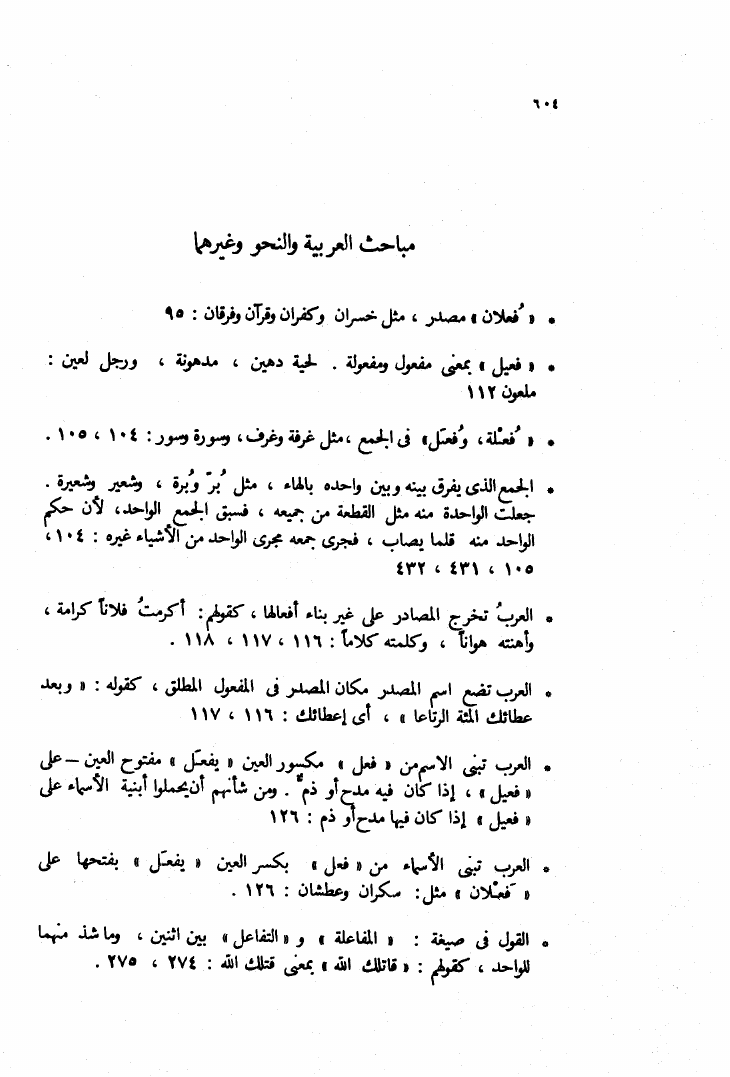 ٦٠٤
مباحث العربية والنحو وغيرهما
• « فُعلان » مصدر ، مثل خسران وكفران وقرآن وفرقان : ٩٥
• « فعيل » بمعنى مفعول ومفعولة . لحية دهين ، مدهونة ، ورجل لعين :
ملعون ١١٢
• « فُعْلة، وفُعَل» فى الجمع ، مثل غرفة وغرف، وسورة وسور : ١٠٤ ، ١٠٥ .
• الجمع الذى يفرق بينه وبين واحده بالهاء ، مثل بُرّ وبُرة ، وشعير وشعيرة .
جعلت الواحدة منه مثل القطعة من جميعه ، فسبق الجمع الواحد، لأن حكم
الواحد منه قلما يصاب ، فجرى جمعه مجرى الواحد من الأشياء غيره : ١٠٤ ،
١٠٥ ، ٤٣١ ، ٤٣٢
• العربُ تخرج المصادر على غير بناء أفعالها ، كقولهم : أكرمتُ فلاناً كرامة ،
وأهنته هواناً ، وكلمته كلاماً : ١١٦ ، ١١٧ ، ١١٨ .
• العرب تضع اسم المصدر مكان المصدر فى المفعول المطلق ، كقوله : « وبعد
عطائك المئة الرتاعا » ، أى إعطائك : ١١٦ ، ١١٧
• العرب تبنى الاسم من « فعل » مكسور العين « يفعَل » مفتوح العين – على
« فعيل » ، إذا كان فيه مدح أو ذم . ومن شأنهم أن يحملوا أبنية الأسماء على
« فعيل » إذا كان فيها مدح أو ذم : ١٢٦
• العرب تبنى الأسماء من « فعل » بكسر العين « يفعَل » بفتحها على
« فَعْلان » مثل : سكران وعطشان : ١٢٦ .
• القول فى صيغة : « المفاعلة » و « التفاعل » بين اثنين ، وما شذ منهما
للواحد ، كقولهم : « قاتلك الله » بمعنى قتلك الله : ٢٧٤ ، ٢٧٥ .